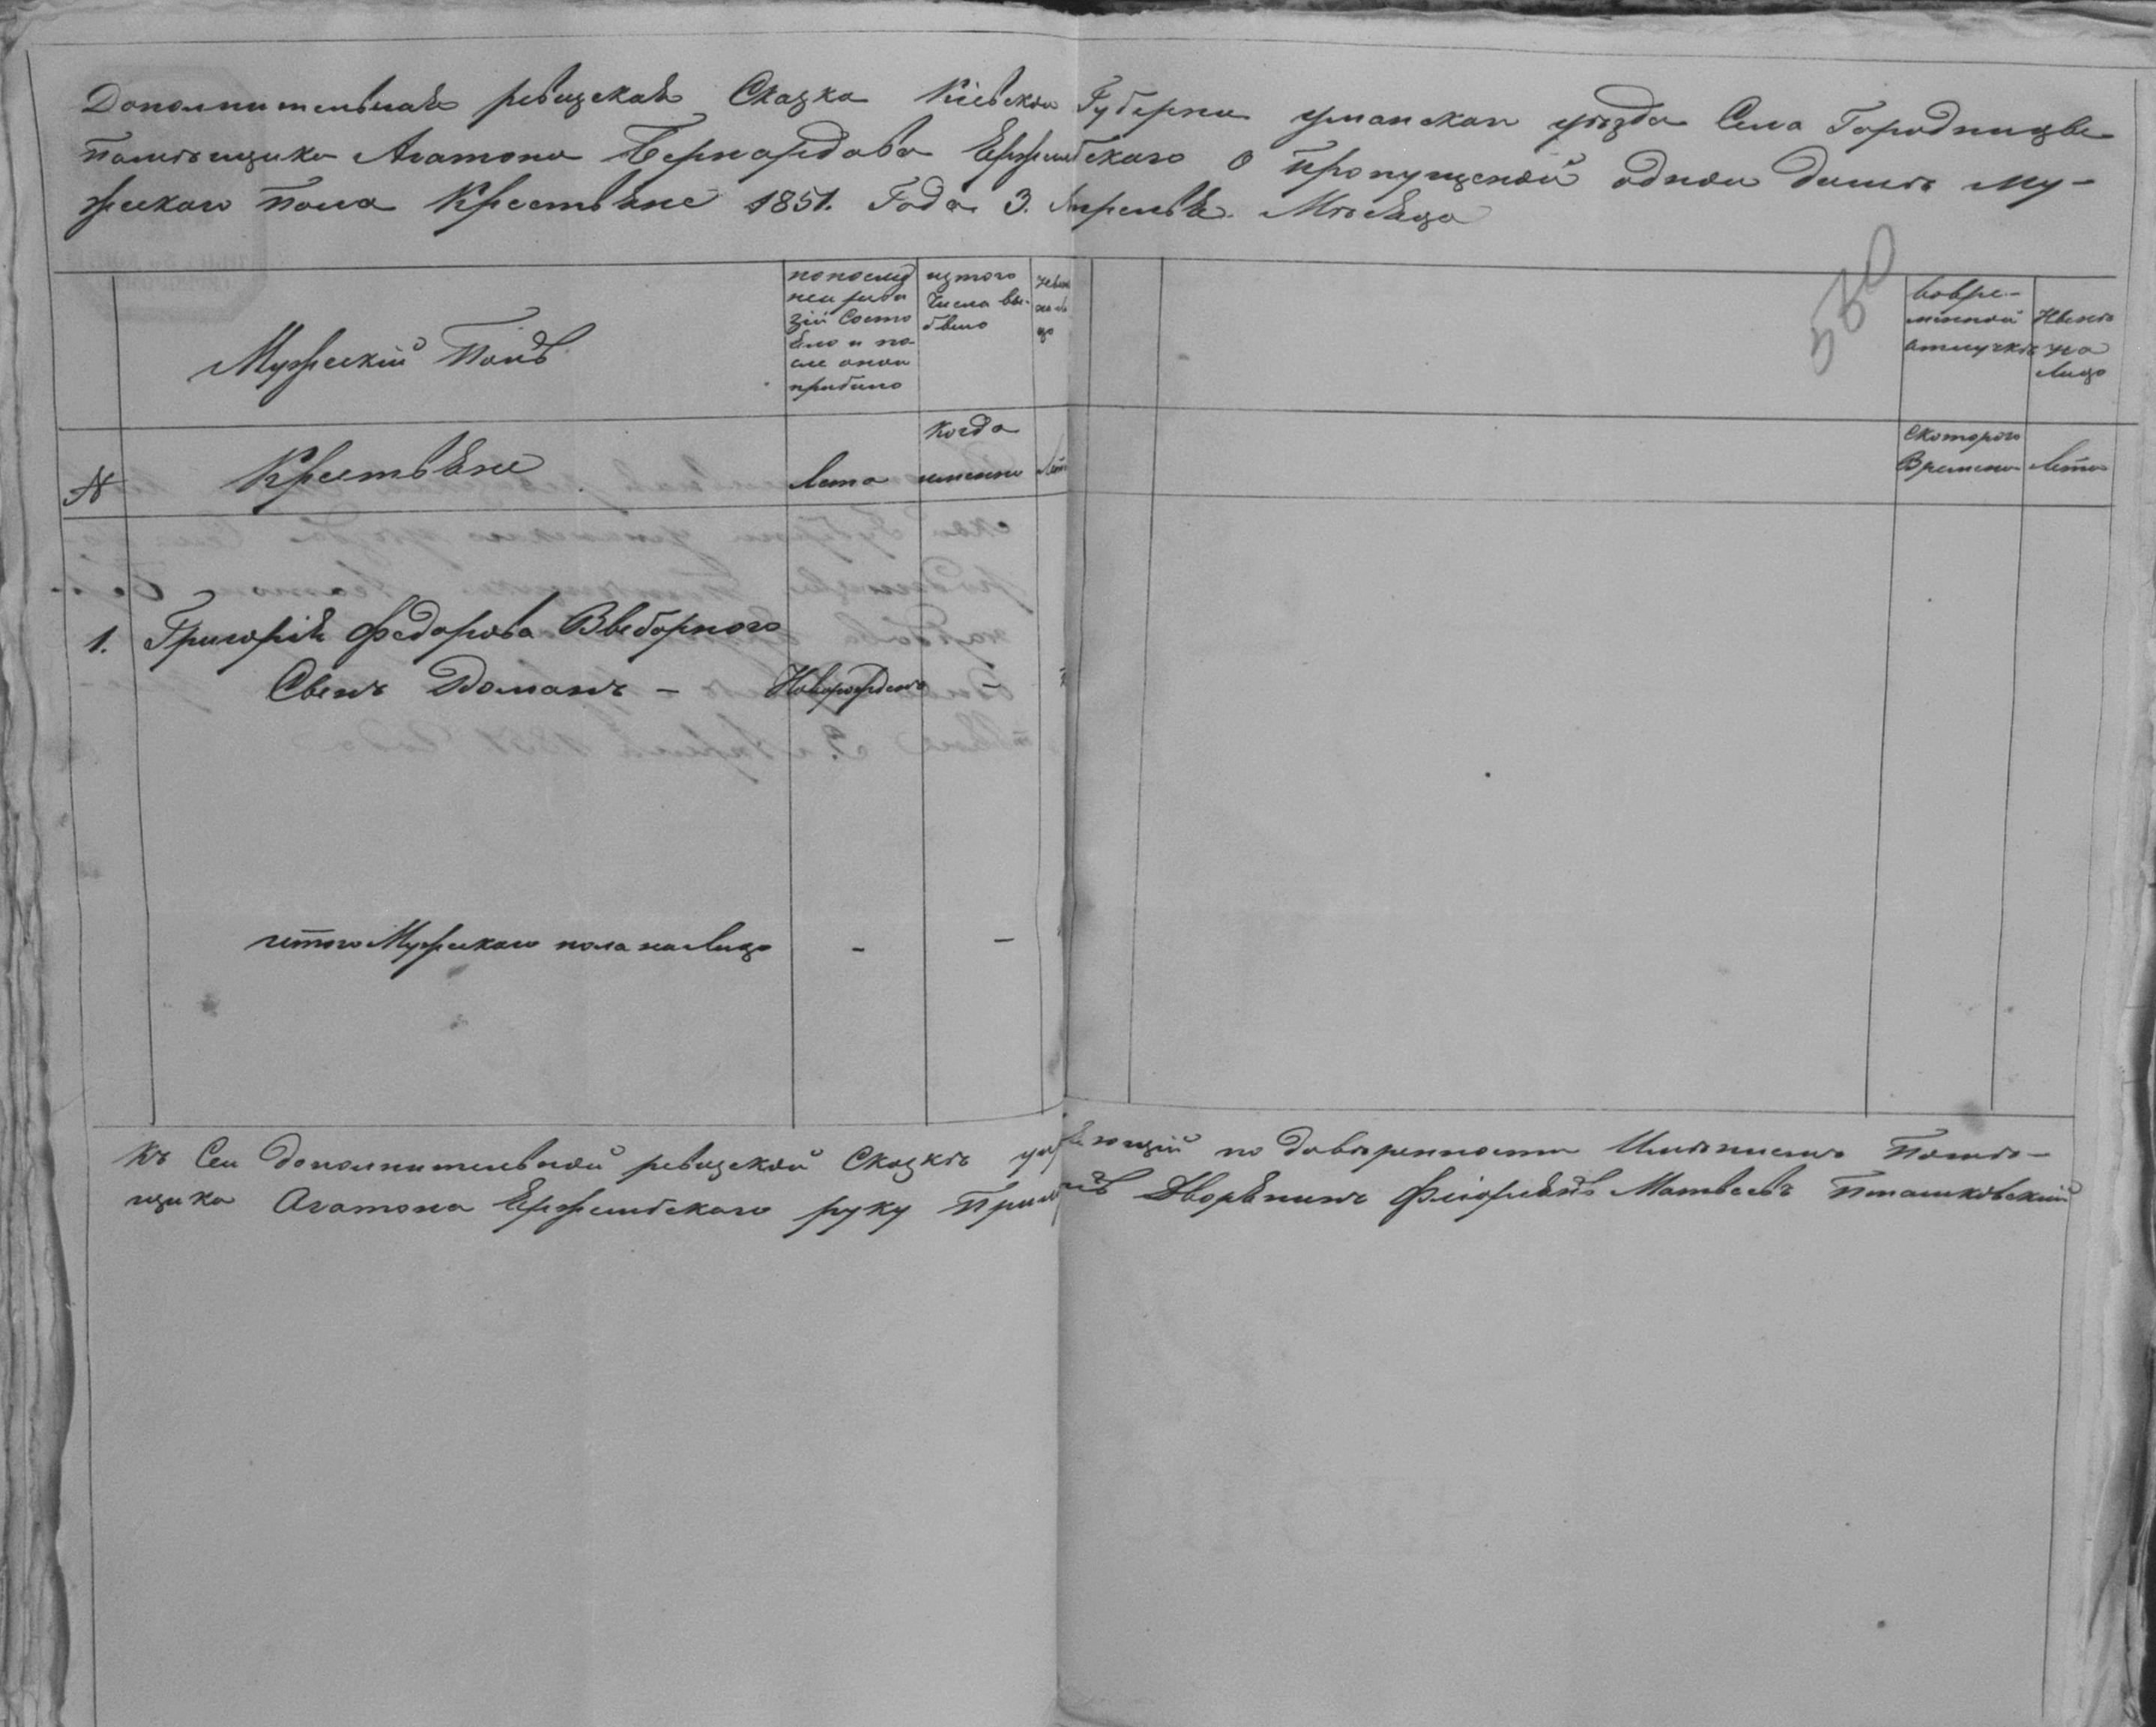 Дополнительная ревизская Сказка Кіевской Губерни уманскаи уѣзда Села Городницы
Помѣщика Агатона Бернардова Ержембскаго О пропущеной одной душѣ му-
жескаго Пола Крестьяне 1851. Года 3. Апреля Мѣсяца
580
Мужескій Полъ
по послед
ней реви
зіи Состо
яло и по
сле оной
прибыло
изтого
Числа вы-
было
вовре-
менной
отлучкѣ
Нынѣ
на
Лицо
№
Крестьяне
Лета
Когда
именно
скоторого
Времени
Лета
1. Григорія Федорова Выборного
Сынъ Романъ - Новорожденъ -
итого Мужескаго пола на Лицо - -
Къ Сей дополнительной ревизской Сказкѣ по довѣренности Имѣниемъ Помѣ-
щика Агатона Ержембскаго руку Дворянинъ Матвеевъ Пташковскій